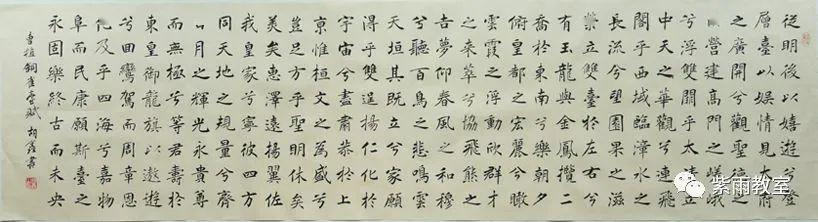 從明後以嬉遊兮登
層臺以娛情見太府
之廣開兮觀聖德之
所營建高門之嵯峨
兮浮雙闕乎太清立
中天之華觀兮連飛
閣乎西城臨漳水之
長流兮望園果之滋
榮立雙臺於左右兮
有玉龍與金鳳攬二
喬於東南兮樂朝夕
俯皇都之宏麗兮瞰
雲霞之浮動欣群才
之來萃兮協飛熊之
吉夢仰春風之和穆
兮聽百鳥之悲鳴雲
天垣其既立兮家願
得乎雙逞揚仁化於
宇宙兮盡肅恭於上
京惟桓文之為盛兮
豈足方乎聖明休矣
美矣惠澤遠揚翼佐
我皇家兮寧彼四方
同天地之規量兮齊
日月之輝光永貴尊
而無極兮等君壽於
東皇御龍旗以遨遊
兮回鸞駕而周章恩
化及乎四海兮嘉物
阜而民康願斯臺之
永固樂終古而未央
曹植銅雀臺賦 胡霞書
紫雨教室